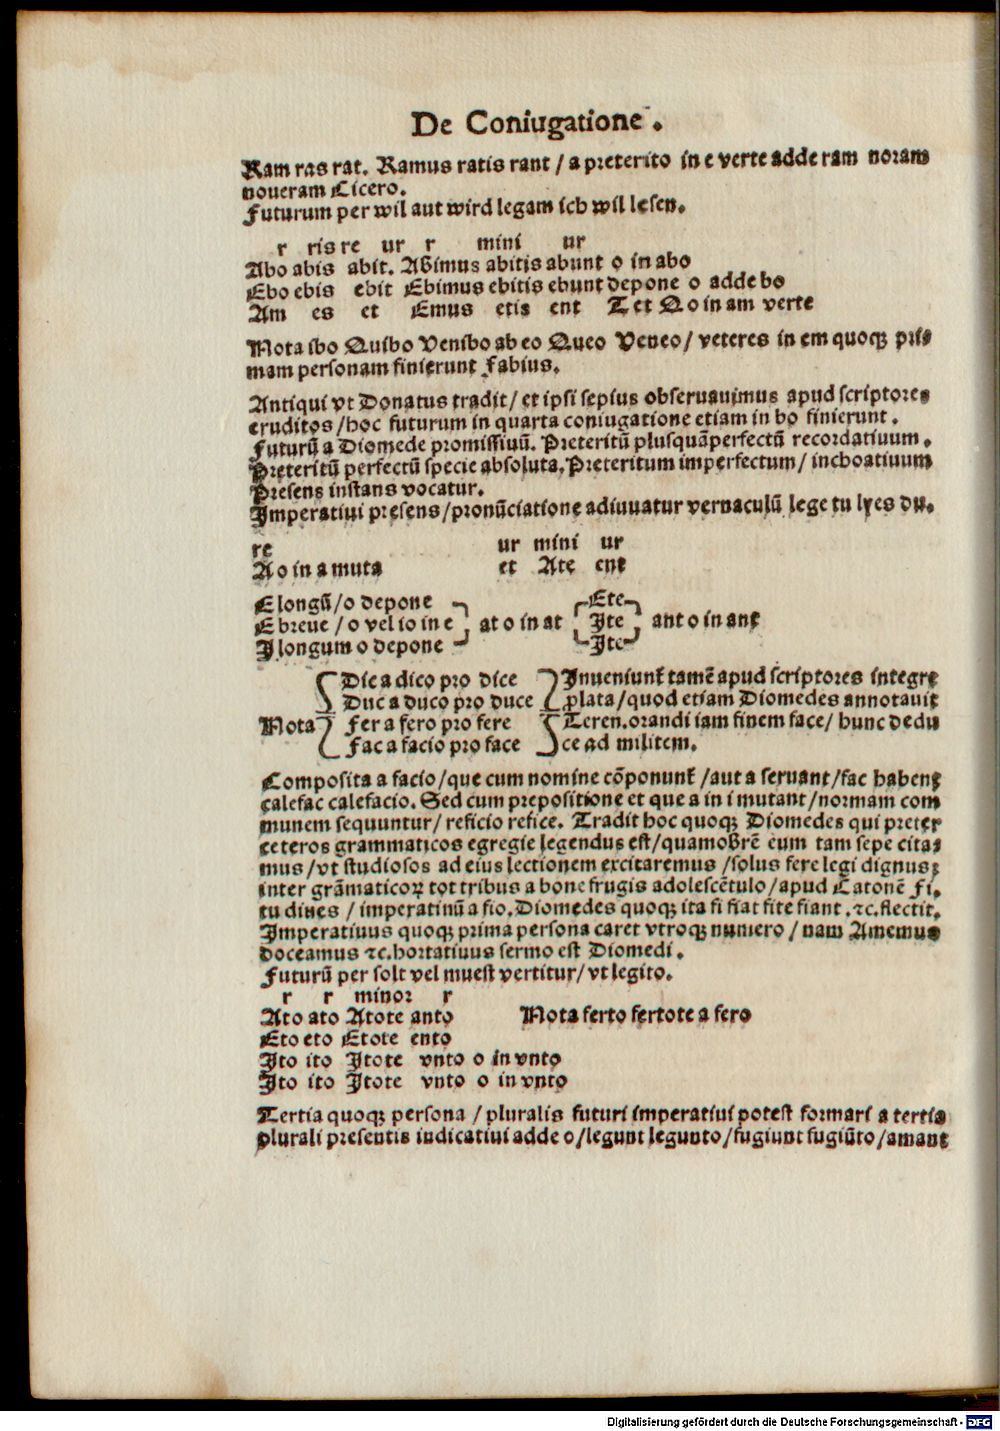 De Coniugatione.
Ram ras rat. Ramus ratis rant / a preterito in e verte adde ram noram
noueram Cicero.
Futurum per wil aut wird legam ich wil lesen.
r ris re ur r mini ur
Abo abis abit. Abimus abitis abunt o in abo
Ebo ebis ebit Ebimus ebitis ebunt depone o adde bo
Am es et Emus etis ent Tet Qo in am verte
Nota ibo Quibo Venibo ab eo Queo Veneo / veteres in em quoqꝫ pri⸗
mam personam finierunt Fabius.
Antiqui vt Donatus tradit / et ipsi sepius obseruauimus apud scriptores
eruditos / hoc futurum in quarta coniugatione etiam in bo finierunt.
Futurū a Diomede promissiuū. Preteritū plusquāperfectū recordatiuum.
Preteritū perfectū specie absoluta. Preteritum imperfectum / inchoatiuum
Presens instans vocatur.
Imperatiui presens / pronūciatione adiuuatur vernaculū lege tu lyes du.
re ur mini ur
Ao in a muta et Ate ent
E longū / o depone Ete
E breue / o vel io in e at o in at Ite ant o in ant
I longum o depone Ite
Dic a dico pro dice Inueniunt tamē apud scriptores integre
Duc a duco pro duce plata / quod etiam Diomedes annotauit
Nota Fer a fero pro fere Teren. orandi iam finem face / hunc dedu
Fac a facio pro face ce ad militem.
Composita a facio / que cum nomine cōponunt / aut a seruant / fac habent
calefac calefacio. Sed cum prepositione et que a in i mutant / normam com
munem sequuntur / reficio refice. Tradit hoc quoqꝫ Diomedes qui preter
ceteros grammaticos egregie legendus est / quamobrē eum tam sepe cita⸗
mus / vt studiosos ad eius lectionem excitaremus / solus fere legi dignus
inter grāmaticoꝝ tot tribus a bone frugis adolescētulo / apud Catonē Fi.
tu dines / imperatinū a fio. Diomedes quoqꝫ ita fi fiat fite fiant. ⁊c. flectit.
Imperatiuus quoqꝫ prima persona caret vtroqꝫ numero / nam Amemus
doceamus ⁊c. hortatiuus sermo est Diomedi.
Futurū per solt vel muest vertitur / vt legito.
r r minor r
Ato ato Atote anto Nota ferto fertote a fero
Eto eto Etote ento
Ito ito Itote vnto o in vnto
Ito ito Itote vnto o in vnto
Tertia quoqꝫ persona / pluralis futuri imperatiui potest formari a tertia
plurali presentis indicatiui adde o / legunt legunto / fugiunt fugiūto / amant
Digitalisierung gefördert durch die Deutsche Forschungsgemeinschaft - DFG